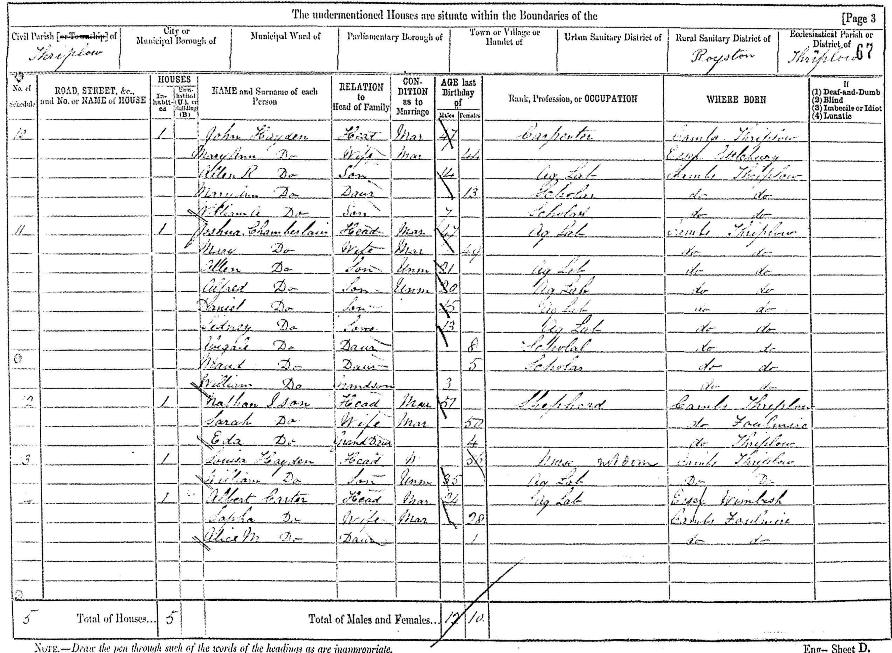 The undermentioned Houses are situate within the Boundaries of the [Page 3
Civil Parish [or Township] of City or Municipal Borough of Municipal Ward of Parliamentary Borough of Town or Village or Hamlet of Urban Sanitary District of Rural Sanitary District of Ecclesiastical Parish or District of
Thriplow Royston Thriplow 67
No. of Schedule ROAD, STREET, &c., and No. or NAME of HOUSE HOUSES Inhabited NAME and Surname of each Person RELATION to Head of Family CONDITION as to Marriage AGE last Birthday of Males Females Rank, Profession, or OCCUPATION WHERE BORN If (1) Deaf-and-Dumb (2) Blind (3) Imbecile or Idiot (4) Lunatic
1 John Hayden Head Mar 47 Carpenter Cambs Thriplow
Mary Ann Do Wife Mar 44 Essex
Allen R Do Son 14 Ag Lab Cambs Thriplow
Mary Ann Do Daur 13 Scholar do do
William A Do Son 7 Scholar do do
11 1 Joshua Chamberlain Head Mar 47 Ag Lab Cambs Thriplow
Mary Do Wife Mar 49 do do
Allen Do Son Unm 21 Ag Lab do do
Alfred Do Son Unm 20 Ag Lab do do
Daniel Do Son 15 Ag Lab do do
Sidney Do Son 13 Ag Lab do do
Abigail Do Daur 8 Scholar do do
Maud Do Daur 5 Scholar do do
William Do Grandson 3 do do
12 1 Nathan Ison Head Mar 51 Shepherd Cambs Thriplow
Sarah Do Wife Mar 50 do Foulmire
Eda Do Grand Daur 4 do Thriplow
3 1 Louisa Hayden Head W Nurse Cambs Thriplow
William Do Son Unm 25 Ag Lab Do Do
1 Albert Carter Head Mar 24 Ag Lab Essex Wimbish
Sapha Do Wife Mar 28 Cambs Foulmire
Alice M Do Daur 1 do do
5 Total of Houses... 5 Total of Males and Females... 12 10
NOTE.—Draw the pen through such of the words of the headings as are inappropriate. Eng—Sheet D.